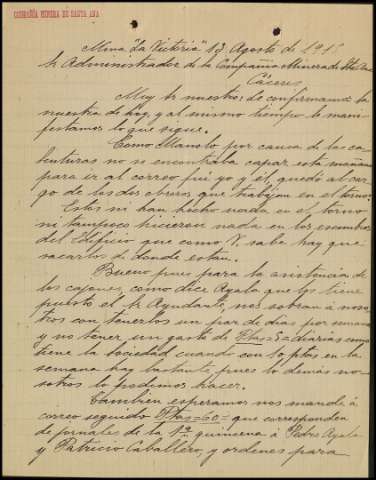 COMPAÑIA MINERA DE SANTA ANA
Mina "La Victoria" 13 Agosto de 191
Sr Administrador de la Compañia Minera de Sta Ana
Cáceres
Muy Sr nuestro: de confirmamos la
nuestra de hoy, y al mismo tiempo le mani-
festamos lo que sigue.
Como Manolo por causa de las ca-
lenturas no se encontraba capaz esta mañana
para ir al correo fui yo y el, quedó al car-
go de los dos obreros que trabajan en el torno.
Estos ni han hecho nada en el torno
ni tampoco hicieron nada en los escombros
del Edificio que como V. sabe hay que
sacarlos de donde estan.
Bueno pues para la asistencia de
los cajones, como dice Ayala que los tiene
puesto el Sr Ayudante, nos sobran á noso-
tros con tenerlos un par de dias por semana
y no tener un gasto de Ptas 5 = diarias como
tiene la Sociedad cuando con 10 ptas en la
semana hay bastante, pues lo demás no-
sotros lo podemos hacer.
Tambien esperamos nos mande á
correo seguido Ptas = 60 = que corresponden
de jornales de la 1ª quincena á Pedro Ayala
y Patricio Caballero, y ordenes para